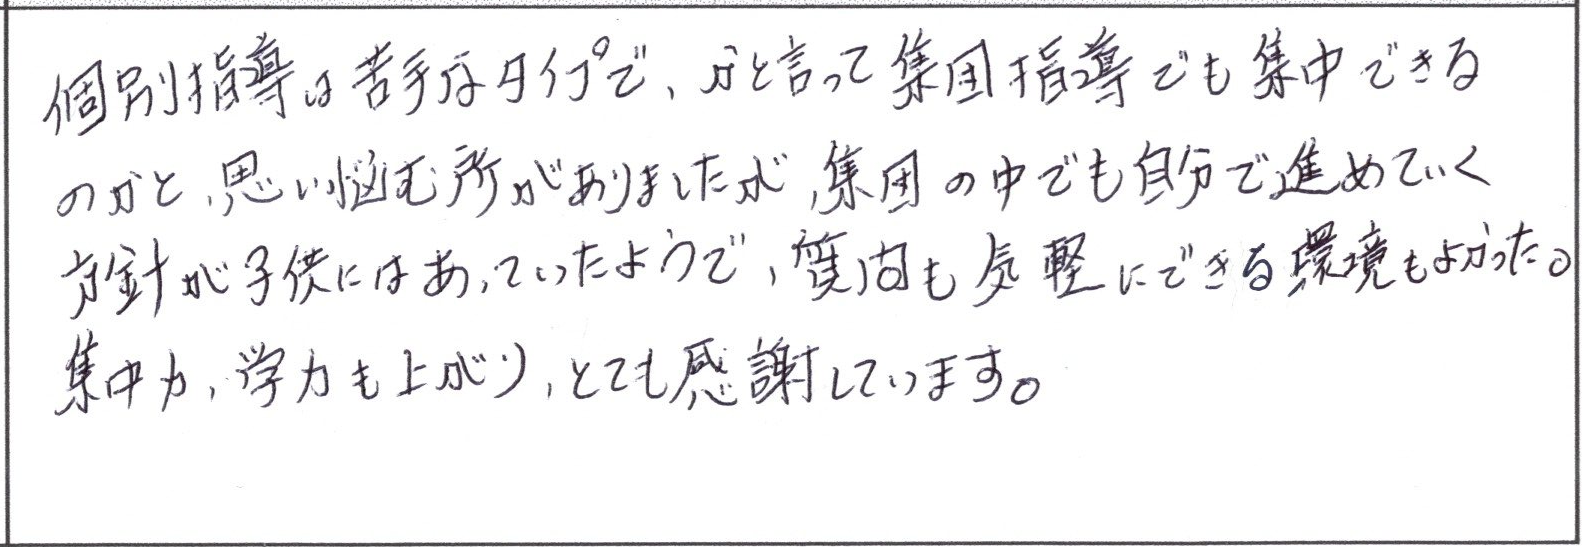 個別指導は苦手なタイプで、かと言って集団指導でも集中できる
のかと、思い悩む所がありましたが、集団の中でも自分で進めていく
方針が子供にはあっていたようで、質問も気軽にできる環境もよかった。
集中力、学力も上がり、とても感謝しています。